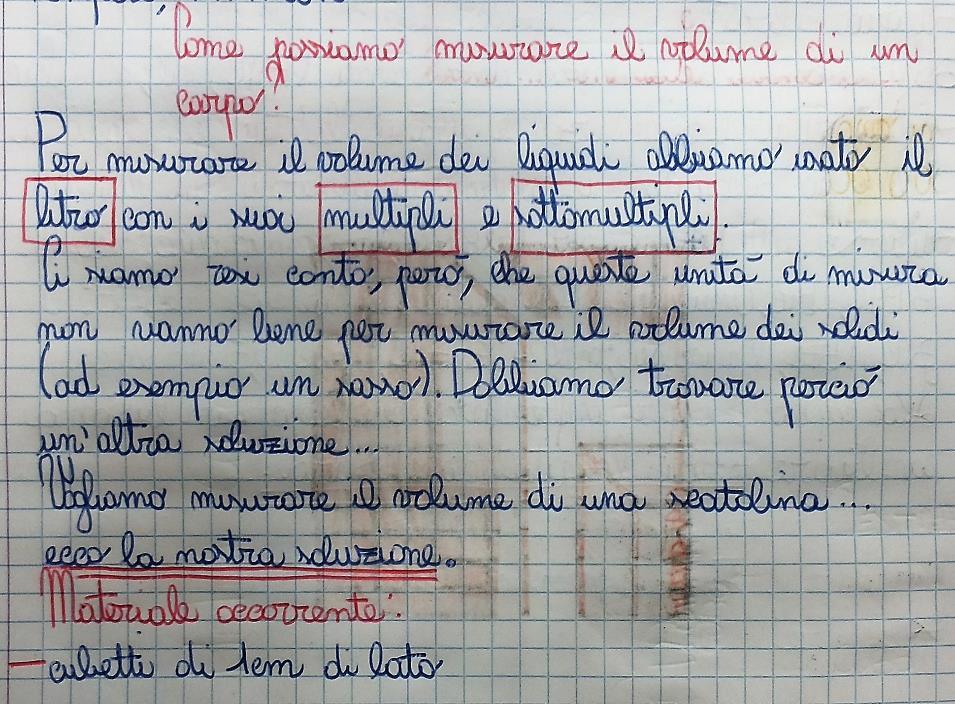 Come possiamo misurare il volume di un
corpo?
Per misurare il volume dei liquidi abbiamo usato il
litro con i suoi multipli e sottomultipli.
Ci siamo resi conto, però, che queste unità di misura
non vanno bene per misurare il volume dei solidi
(ad esempio un sasso). Dobbiamo trovare perciò
un'altra soluzione...
Vogliamo misurare il volume di una scatolina...
ecco la nostra soluzione.
Materiale occorrente:
- cubetti di 1cm di lato